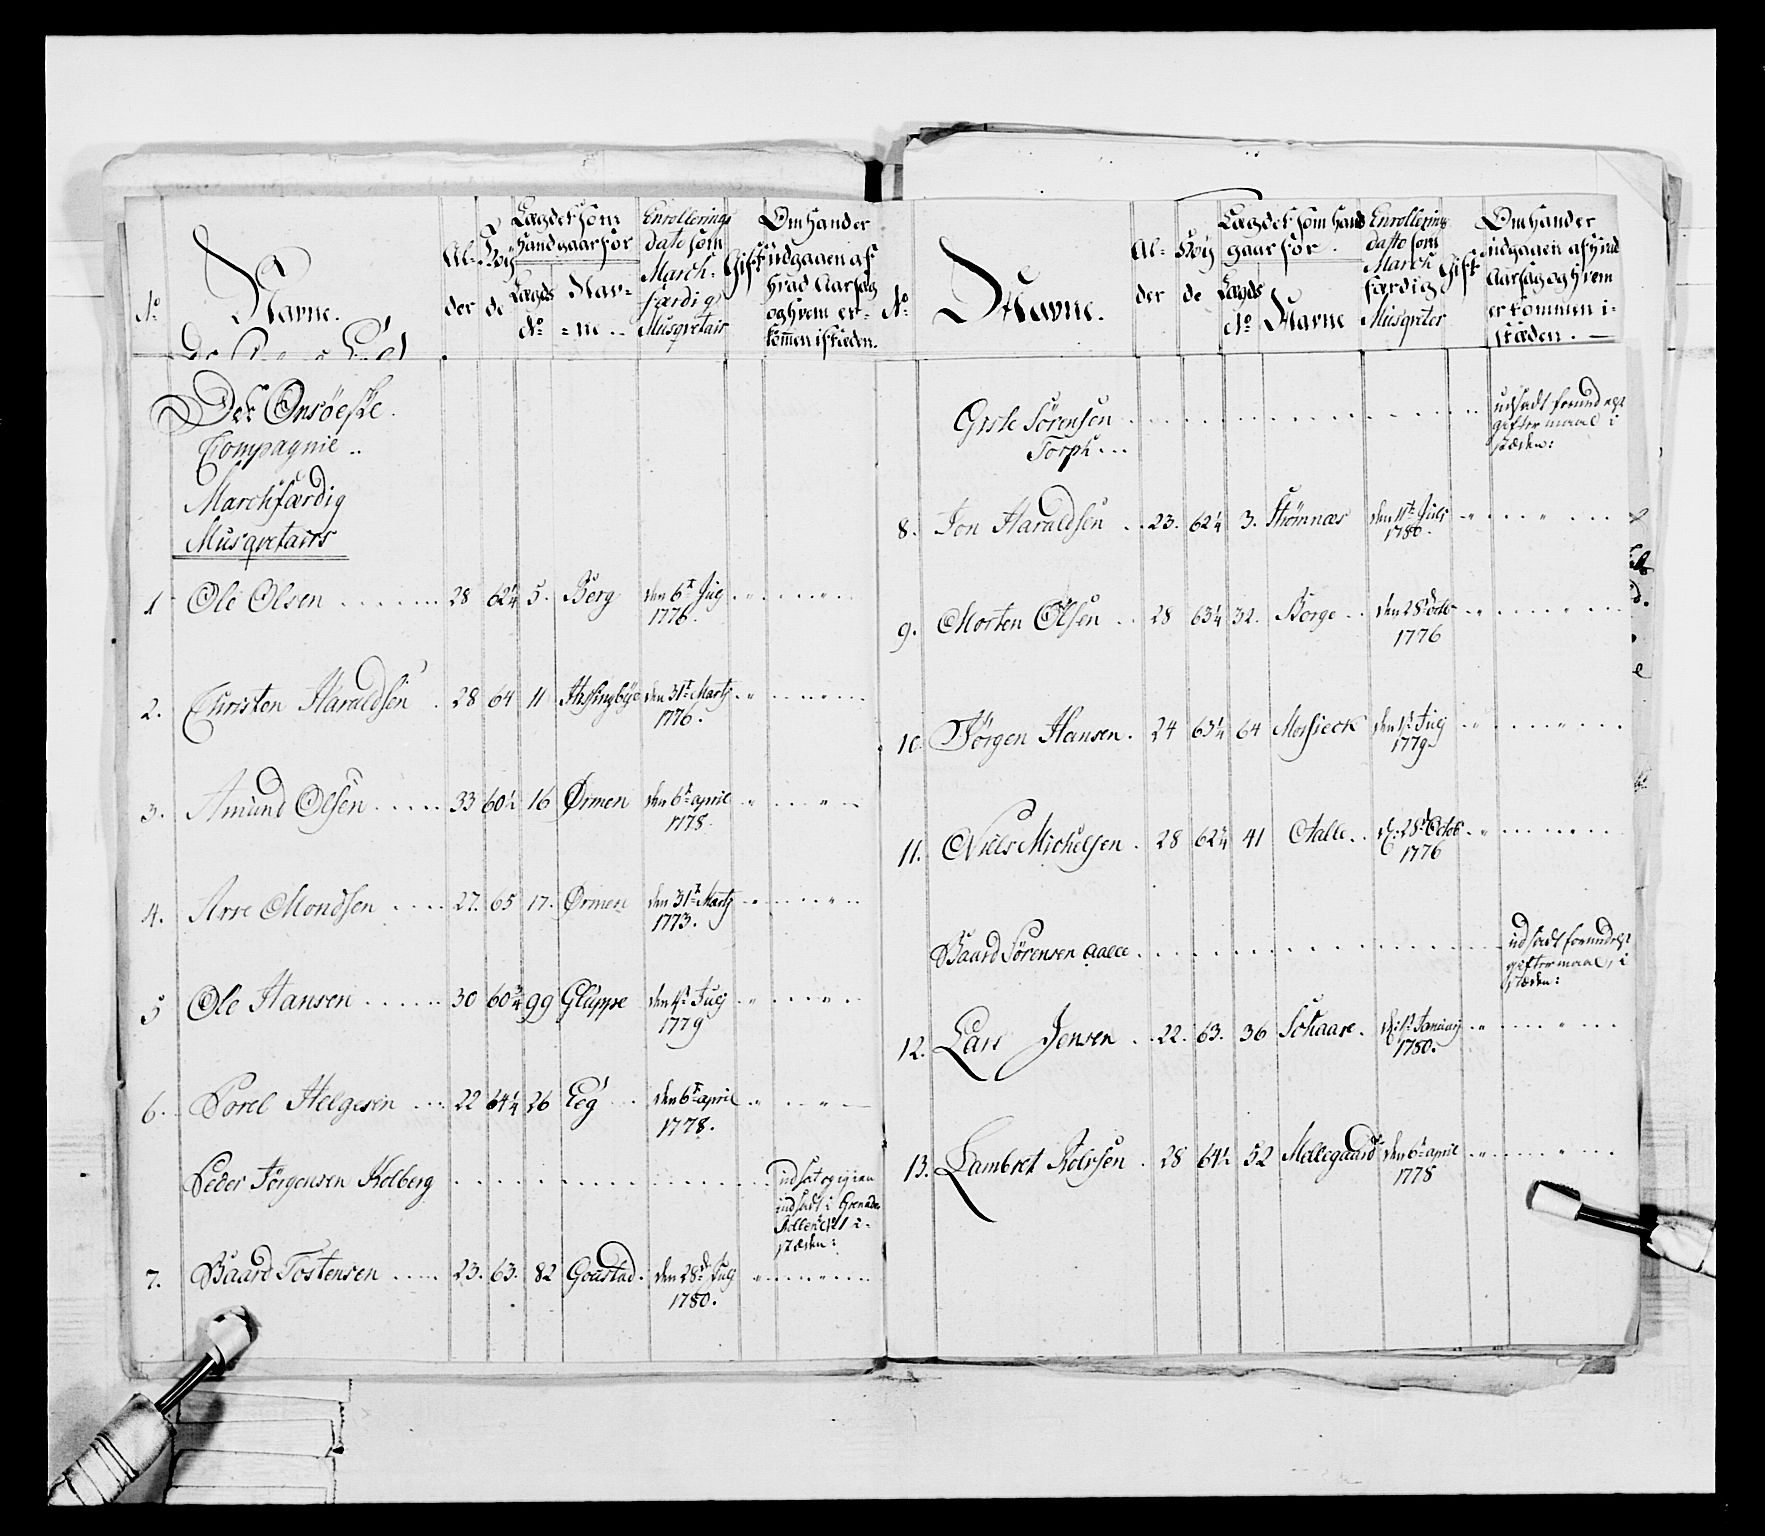 No
Navne.
Al-
der
Høy
de
Lægdet som
hand gaar for
Lægds
No
Nav-
ne
Enrollerings
dato som
March-
færdig
Musqvetair
Gift
Om hand er
udgaaen af
hvad Aarsag
og hvem er-
kommen i stæden.
Det Onsöeske
Compagnie
Marchfærdig
Musqvetairs
1 Ole Olsen 28 62¼ 5. Berg den 6t July
1776.
2. Christen Haraldsen 28 64 11 den 31t Martj
1776.
3. Amund Olsen 33 60½ 16 Ørmen den 6t april
1778.
4. Arve Mondsen 27. 65 17. Ørmen den 31t Martj
1773.
5 Ole Hansen 30 60¾ 99 Gluppe den 1t July
1779
6. Porel Helgesen 22 64¼ 26 Eeg den 6t april
1778.
Peder Jörgensen Kolberg udsat og igien
indsadt i Grenadr
i
stæden:
7. Baard Tostensen 23. 63. 82 Goustad. den 28d July
1780.
No
Navne.
Al-
der
Høy
de
Lægdet som hand
gaar for
Lægds
No
Navne
Enrollerings
datto som
March
færdig
Musqveter
Gift
Om hand er
udgaaen af hvad
Aarsag og hvem
er kommen i-
stæden.
Giste Sörensen
Torph
udsadt formedelst
giftermaal i
stæden:
8. Jon Haraldsen 23. 62¼ 3. Strömnæs den 11t July
1780.
9. Morten Olsen 28 63¼ 32. Borge den 28d octb
1776
10. Jörgen Hansen. 24 63¼ 64 Mossieck den 1t July
1779
11. Niels Michelsen 28 62¼ 41 Aalle d: 28d Octob
1776
Baard Sörensen Aalle
udsadt formedelst
giftermaal, i
stæden:
12. Lars Jensen 22. 63. 36 Schaare. d: 1t Januarij
1780.
13. Lambret Rolvsen 28 64½ 52 Mellegaard den 6t april
1778